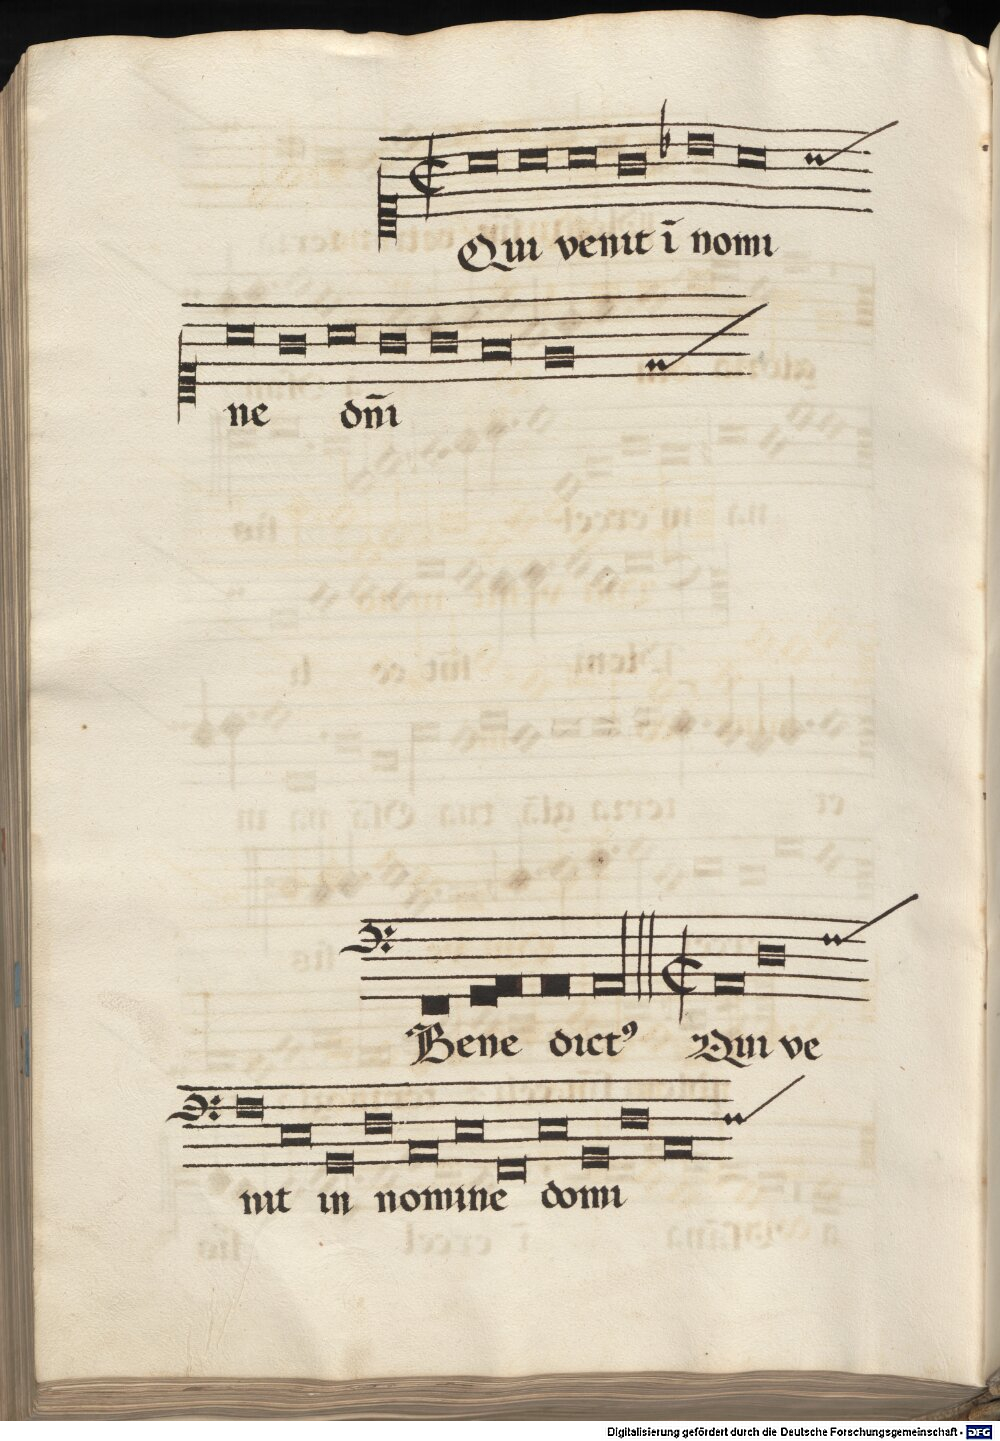 Qui venit ī nomi
ne dn̄i
Bene dictꝰ Qui ve
nit in nomine domi
Digitalisierung gefördert durch die Deutsche Forschungsgemeinschaft - DFG